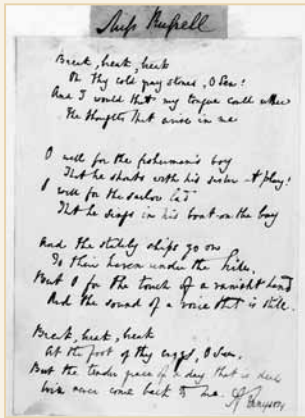 Miss Russell
Break, break, break
On thy cold gray stones, O Sea!
And I would that my tongue could utter
The thoughts that arise in me
O well for the fisherman's boy
That he shouts with his sister at play!
O well for the sailor lad
That he sings in his boat on the bay
And the stately ships go on
To their haven under the hill,
But O for the touch of a vanisht hand
And the sound of a voice that is still.
Break, break, break
At the foot of thy crags, O Sea.
But the tender grace of a day that is dead
Will never come back to me.
A Tennyson